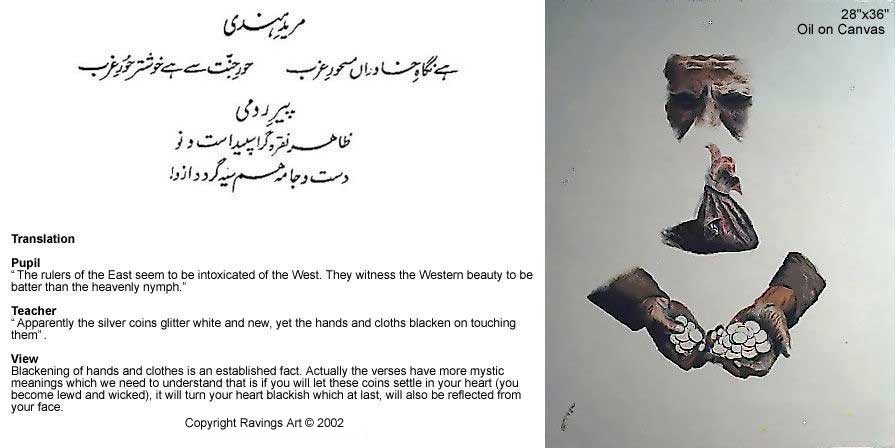 مریدِ ہندی
ہے نگاہِ خاوراں مسحورِ غرب حورِ جنّت سے ہے خوشتر حورِ غرب
پیرِ رومی
ظاہرِ نقرہ گر اسپید است و نو
دست و جامہ ہم سیہ گردد ازو
28"x36"
Oil on Canvas
Translation
Pupil
“ The rulers of the East seem to be intoxicated of the West. They witness the Western beauty to be
batter than the heavenly nymph.”
Teacher
“ Apparently the silver coins glitter white and new, yet the hands and cloths blacken on touching
them” .
View
Blackening of hands and clothes is an established fact. Actually the verses have more mystic
meanings which we need to understand that is if you will let these coins settle in your heart (you
become lewd and wicked), it will turn your heart blackish which at last, will also be reflected from
your face.
Copyright Ravings Art © 2002